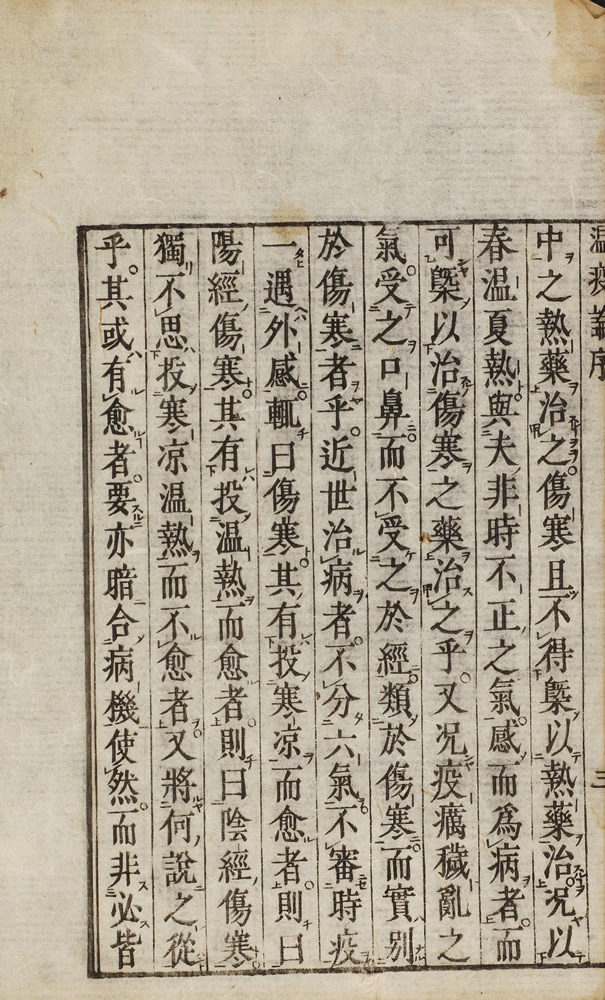 温疫論序
三
中之熱藥治之傷寒且不得槩以熱藥治况以
春温夏熱與夫非時不正之氣感而為病者而
可槩以治傷寒之藥治之乎又况疫癘穢亂之
氣受之口鼻而不受之於經類於傷寒而實别
於傷寒者乎近世治病者不分六氣不審時疫
一遇外感輒曰傷寒其有投寒凉而愈者則曰
陽經傷寒其有投温熱而愈者則曰陰經傷寒
獨不思投寒凉温熱而不愈者又將何說之從
乎其或有愈者要亦暗合病機使然而非必皆